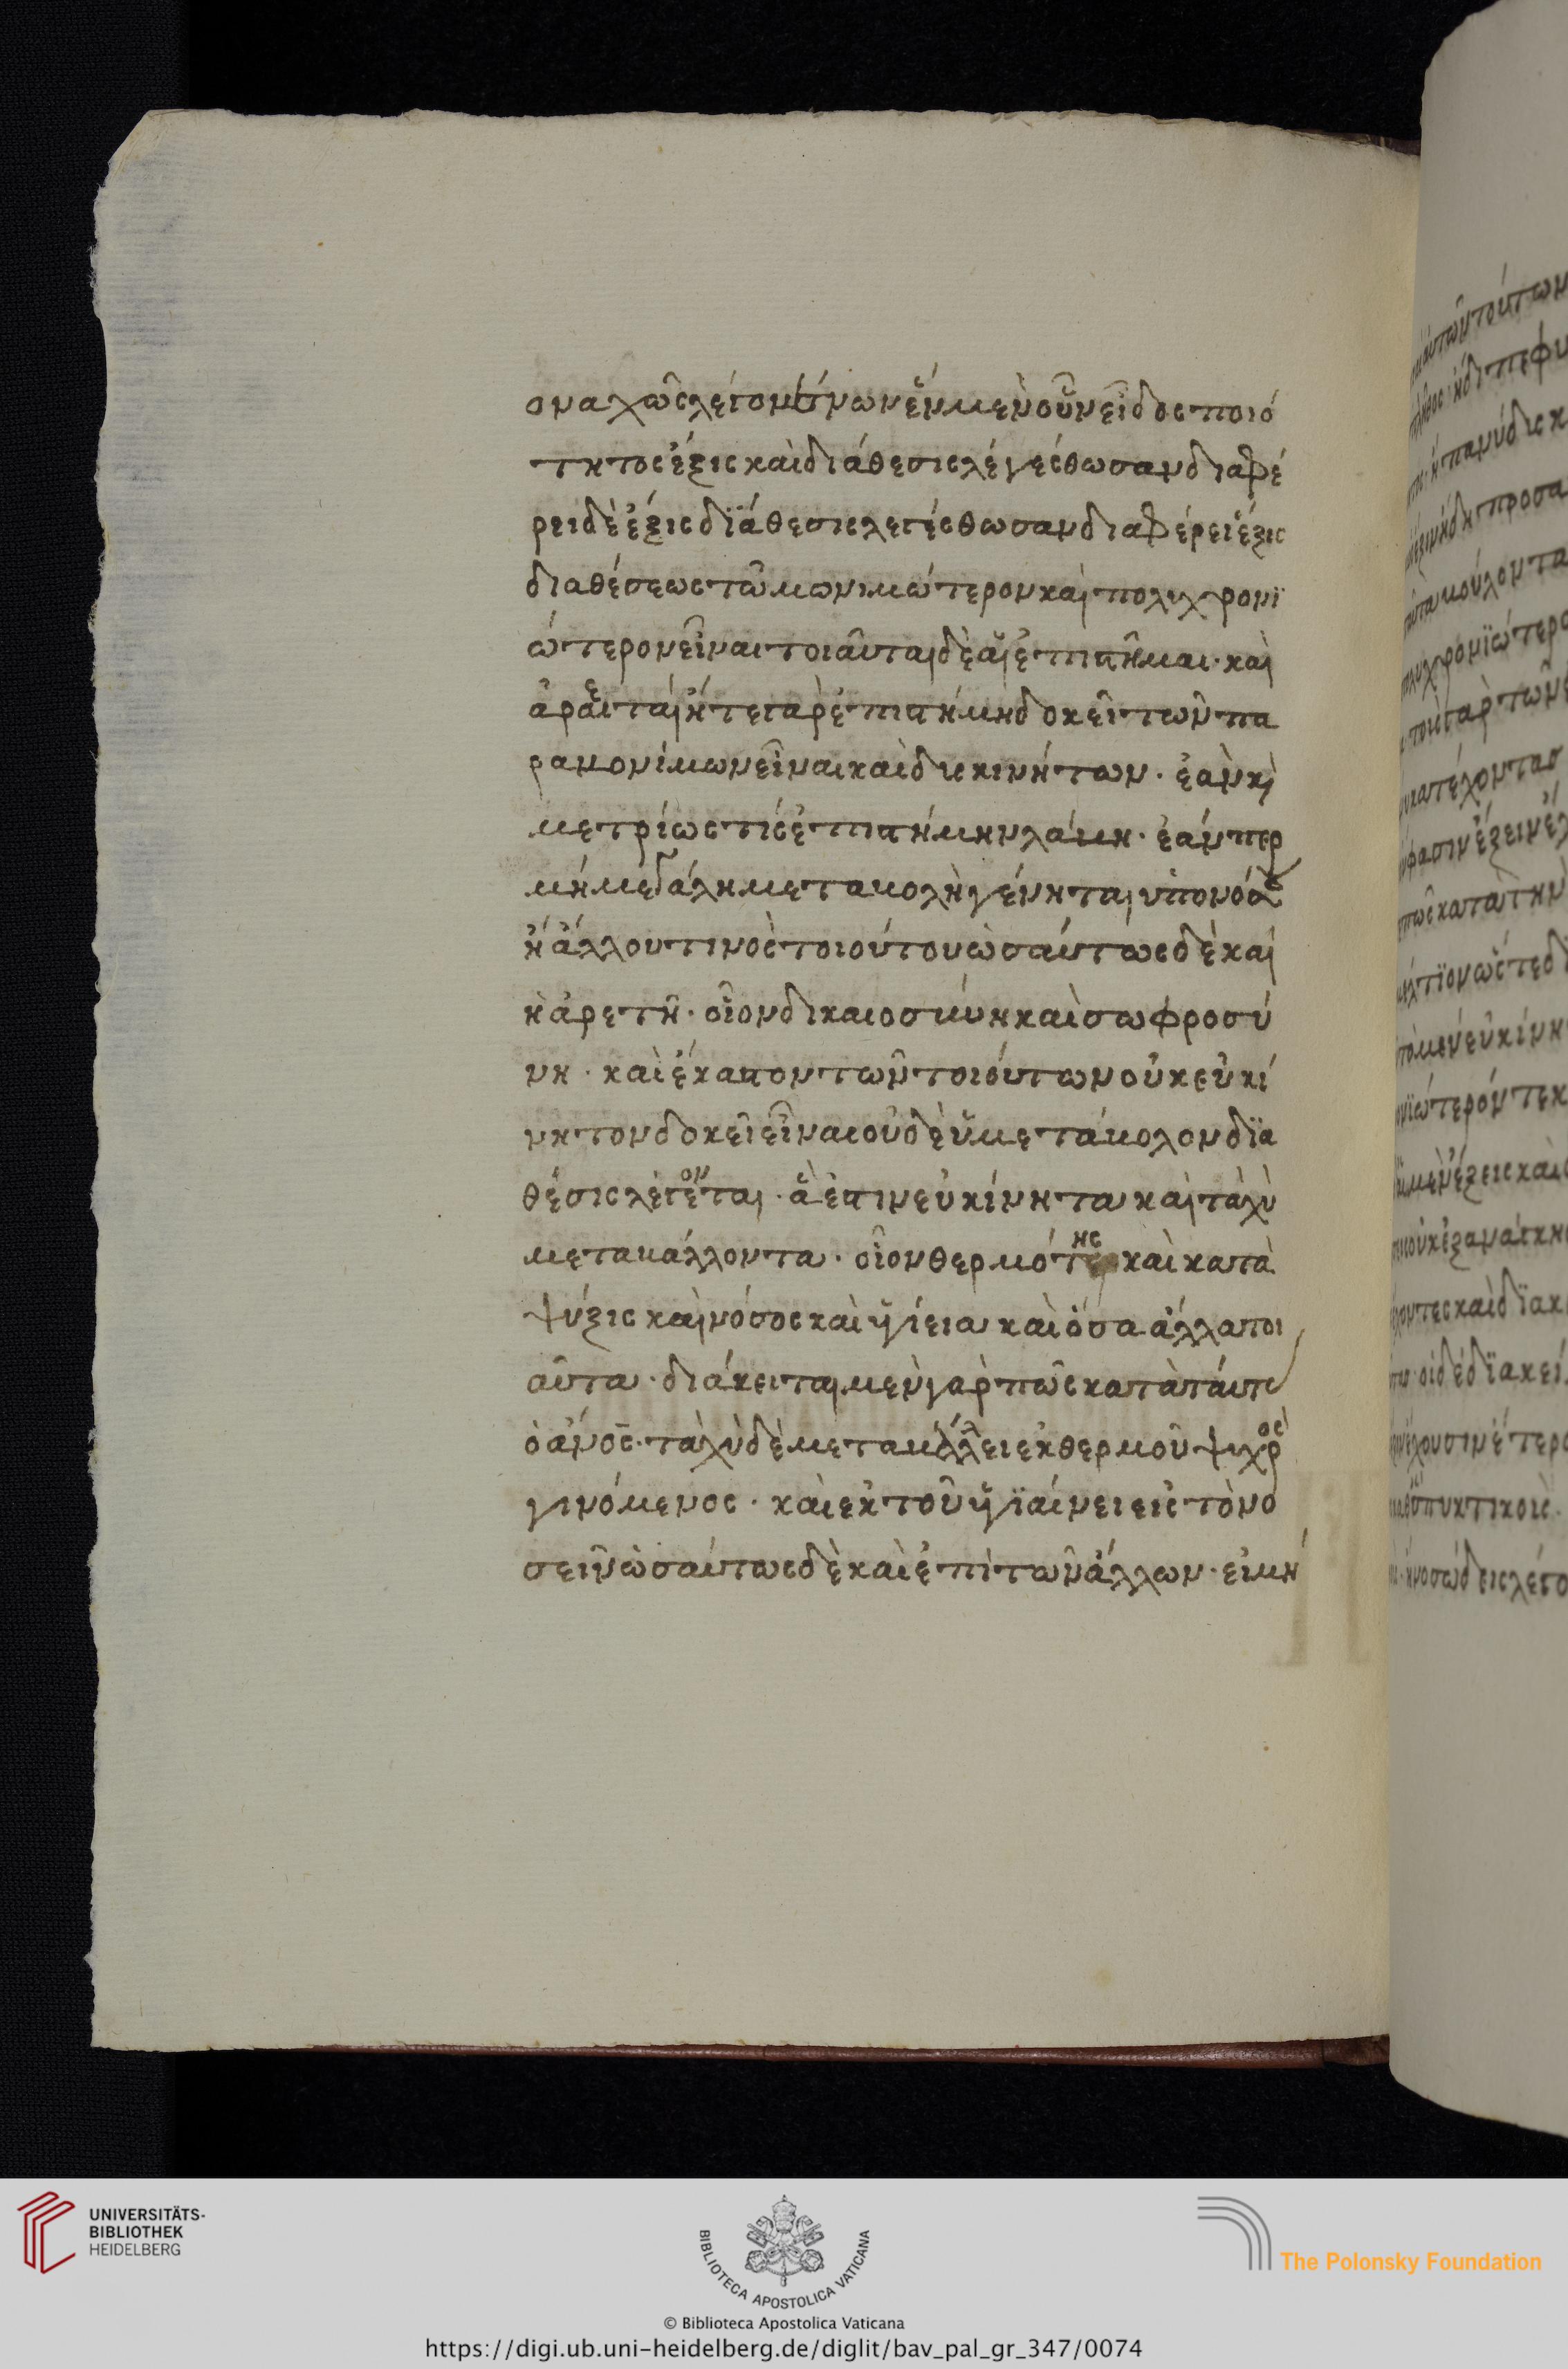 οναχῶς λεγομένων ἓν μὲν οὖν εἶδος ποιό
τητος ἕξις καὶ διάθεσις λεγέσθωσαν διαφέ
ρει δὲ ἕξις διάθεσις λεγέσθωσαν διαφέρει ἕξις
διαθέσεως τῶ μονιμώτερον καὶ πολυχρονϊ
ώτερον εἶναι τοιαῦται δὲ αἵ ἐπιστῆμαι· καὶ
ἀρεταί ἥ τε γὰρ ἐπιστήμη δοκεῖ τῶν πα
ραμονίμων εἶναι καὶ δυσκινήτων· ἐὰν κὶ
μετρίως τίς ἐπιστήμην λάβη· ἐάν περ
μή μεγάλη μεταβολὴ γένηται ὑπὸ νόσου
ἢ ἄλλου τινὸς τοιούτου ὡσαύτως δὲ καὶ
ἡ ἀρετῆ· οἷον δικαιοσύνη καὶ σωφροσύ
νη· καὶ ἕκαστον τῶν τοιούτων οὐκ εὐκί
νητον δοκεῖ εἶναι οὐδὲ εὐμετάβολον δϊα
θέσις λέγονται· ἅ ἐστιν εὐκίνητα καὶ ταχὺ
μεταβάλλοντα· οἷον θερμότης καὶ κατὰ
ψύξις καὶ νόσος καὶ ὑγίεια καὶ ὅσα ἄλλα τοι
αῦτα· διάκειται μὲν γάρ πως κατὰ ταύτας
ὁ ἄνος· ταχὺ δὲ μεταβάλλει ἐκ θερμοῦ ψυχρὸς
γινόμενος· καὶ ἐκ τοῦ ὑγϊαίνειν εἰς τὸ νο
σεῖν ὡσαύτως δὲ καὶ ἐπὶ τῶν ἄλλων· εἰ μή
UNIVERSITÄTS-
BIBLIOTHEK
HEIDELBERG
BIBLIOTECA APOSTOLICA VATICANA
The Polonsky Foundation
© Biblioteca Apostolica Vaticana
https://digi.ub.uni-heidelberg.de/diglit/bav_pal_gr_347/0074